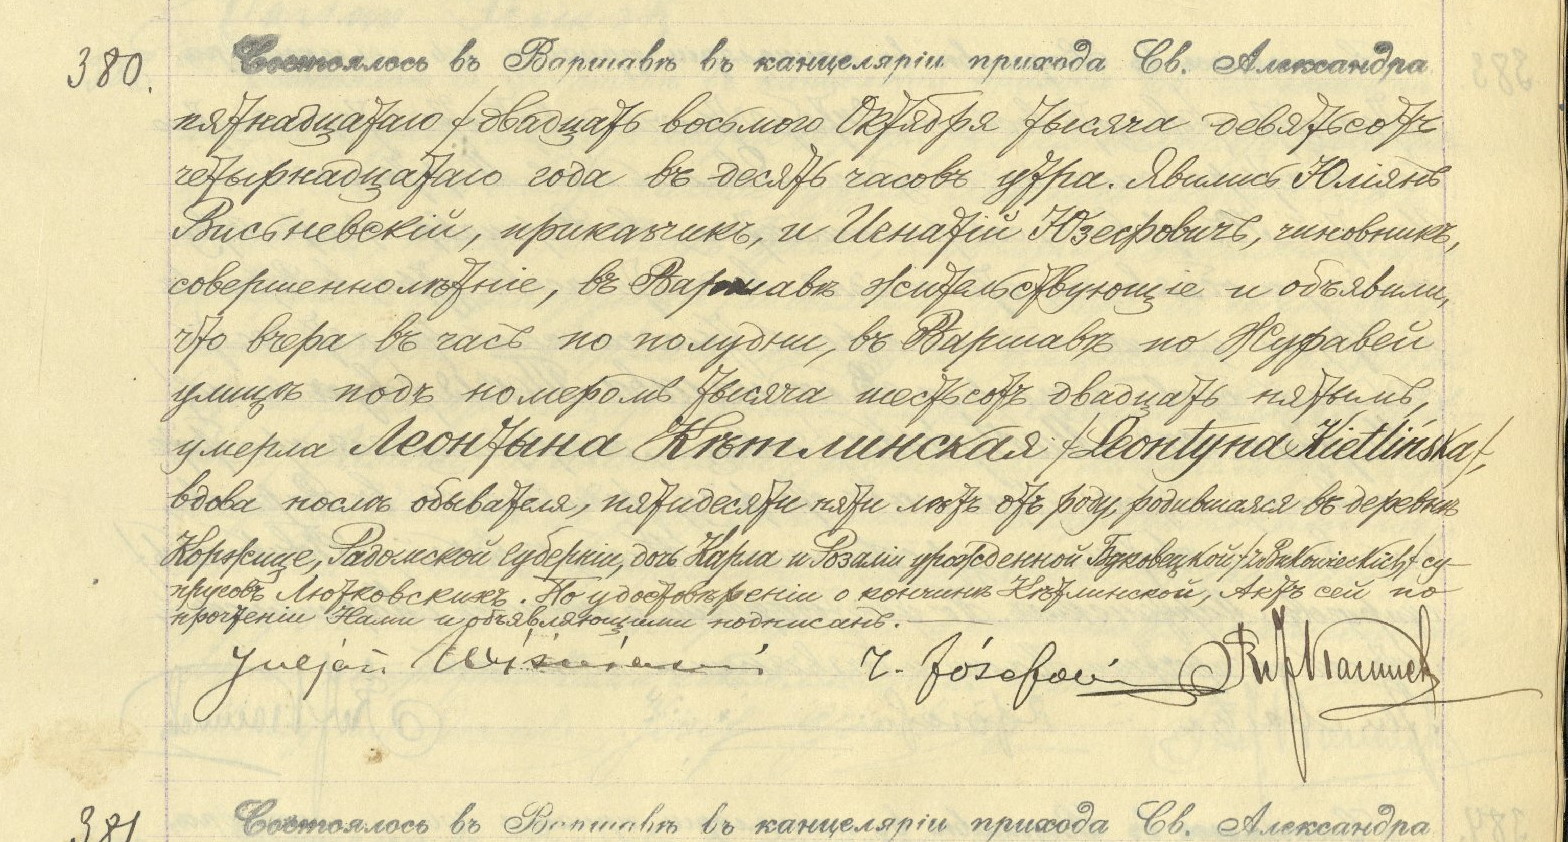 380. Состоялось въ Варшавѣ въ канцеляріи прихода Св. Александра
пятнадцатаго /двадцать восьмого Октября тысяча девятьсотъ
четырнадцатаго года въ десять часовъ утра. Явились Юліянъ
Висьневскій, приказчикъ, и Игнатій Юзефовичъ, чиновникъ,
совершеннолѣтніе, въ Варшавѣ жительствующіе и объявили,
что вчера въ часъ по полудни, въ Варшавѣ по Журавей
улицѣ подъ номеромъ тысяча шестьсотъ двадцать пятымъ,
умерла Леонтына Кѣтлинская /Leontyna Kietlińska/,
вдова послѣ обывателя, пятидесяти пяти лѣтъ отъ роду, родившаяся въ деревнѣ
Коржице, Радомской губерніи, дочь Карла и Розаліи урожденной Буковецкой /z Bukowieckich/ су-
пруговъ Лютковскихъ. По удостовѣреніи о кончинѣ Кѣтлинской, Актъ сей по
прочтеніи Нами и объявляющими подписанъ.
Juljan Wiśniewski I. Józefowicz
381 Состоялось въ Варшавѣ въ канцеляріи прихода Св. Александра